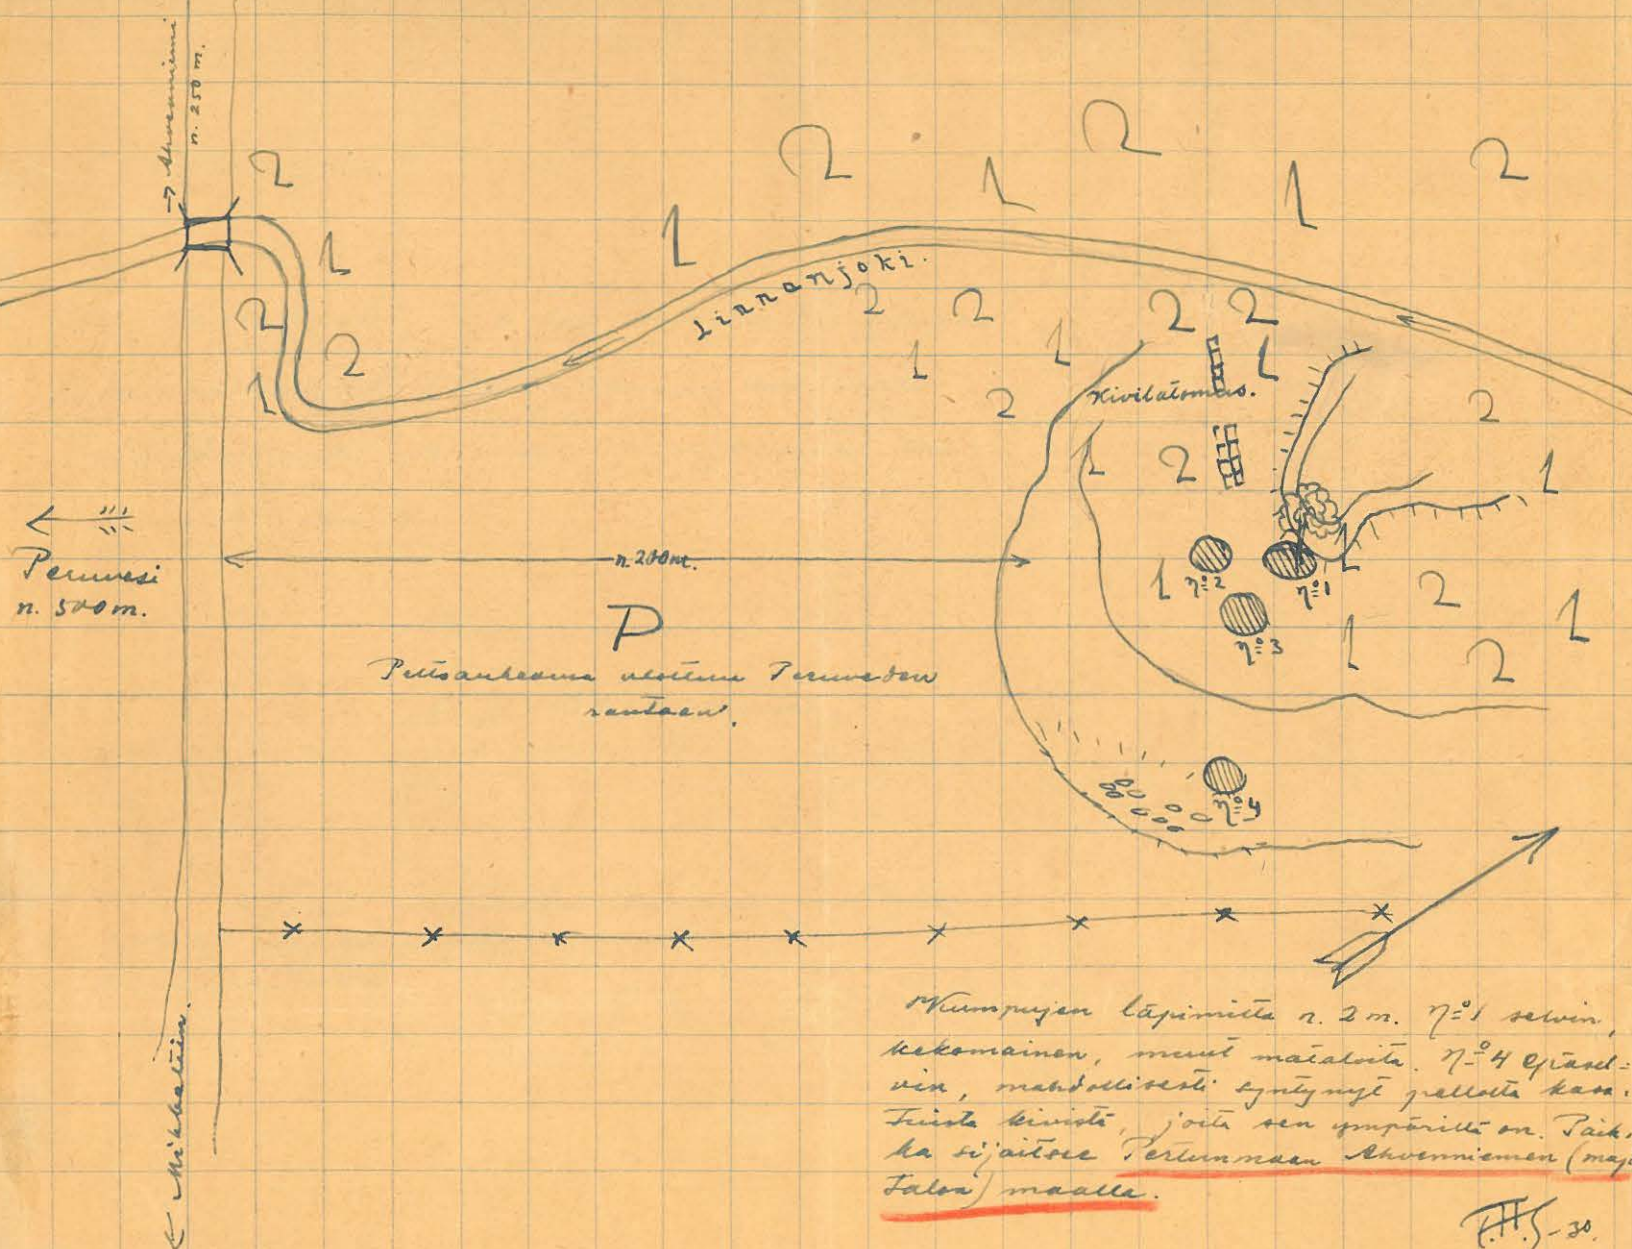 → Ahvenniemi
n. 250 m.
Linnanjoki.
Kivilatomus.
n. 200 m.
Peruvesi
n. 500 m.
P
Peltoaukeama ulottuu Peruveden
rantaan.
nº 2
nº 1
nº 3
nº 4
← Mikkeliin.
Kumpujen läpimitta n. 2 m. nº 1 selvin,
kekomainen, muut mataloita. nº 4 epäsel=
vin, mahdollisesti syntynyt pellolta kasa-
tuista kivistä, joita sen ympärillä on. Paik-
ka sijaitsee Pertunmaan Ahvenniemen (maja
talon) maalla.
-30.